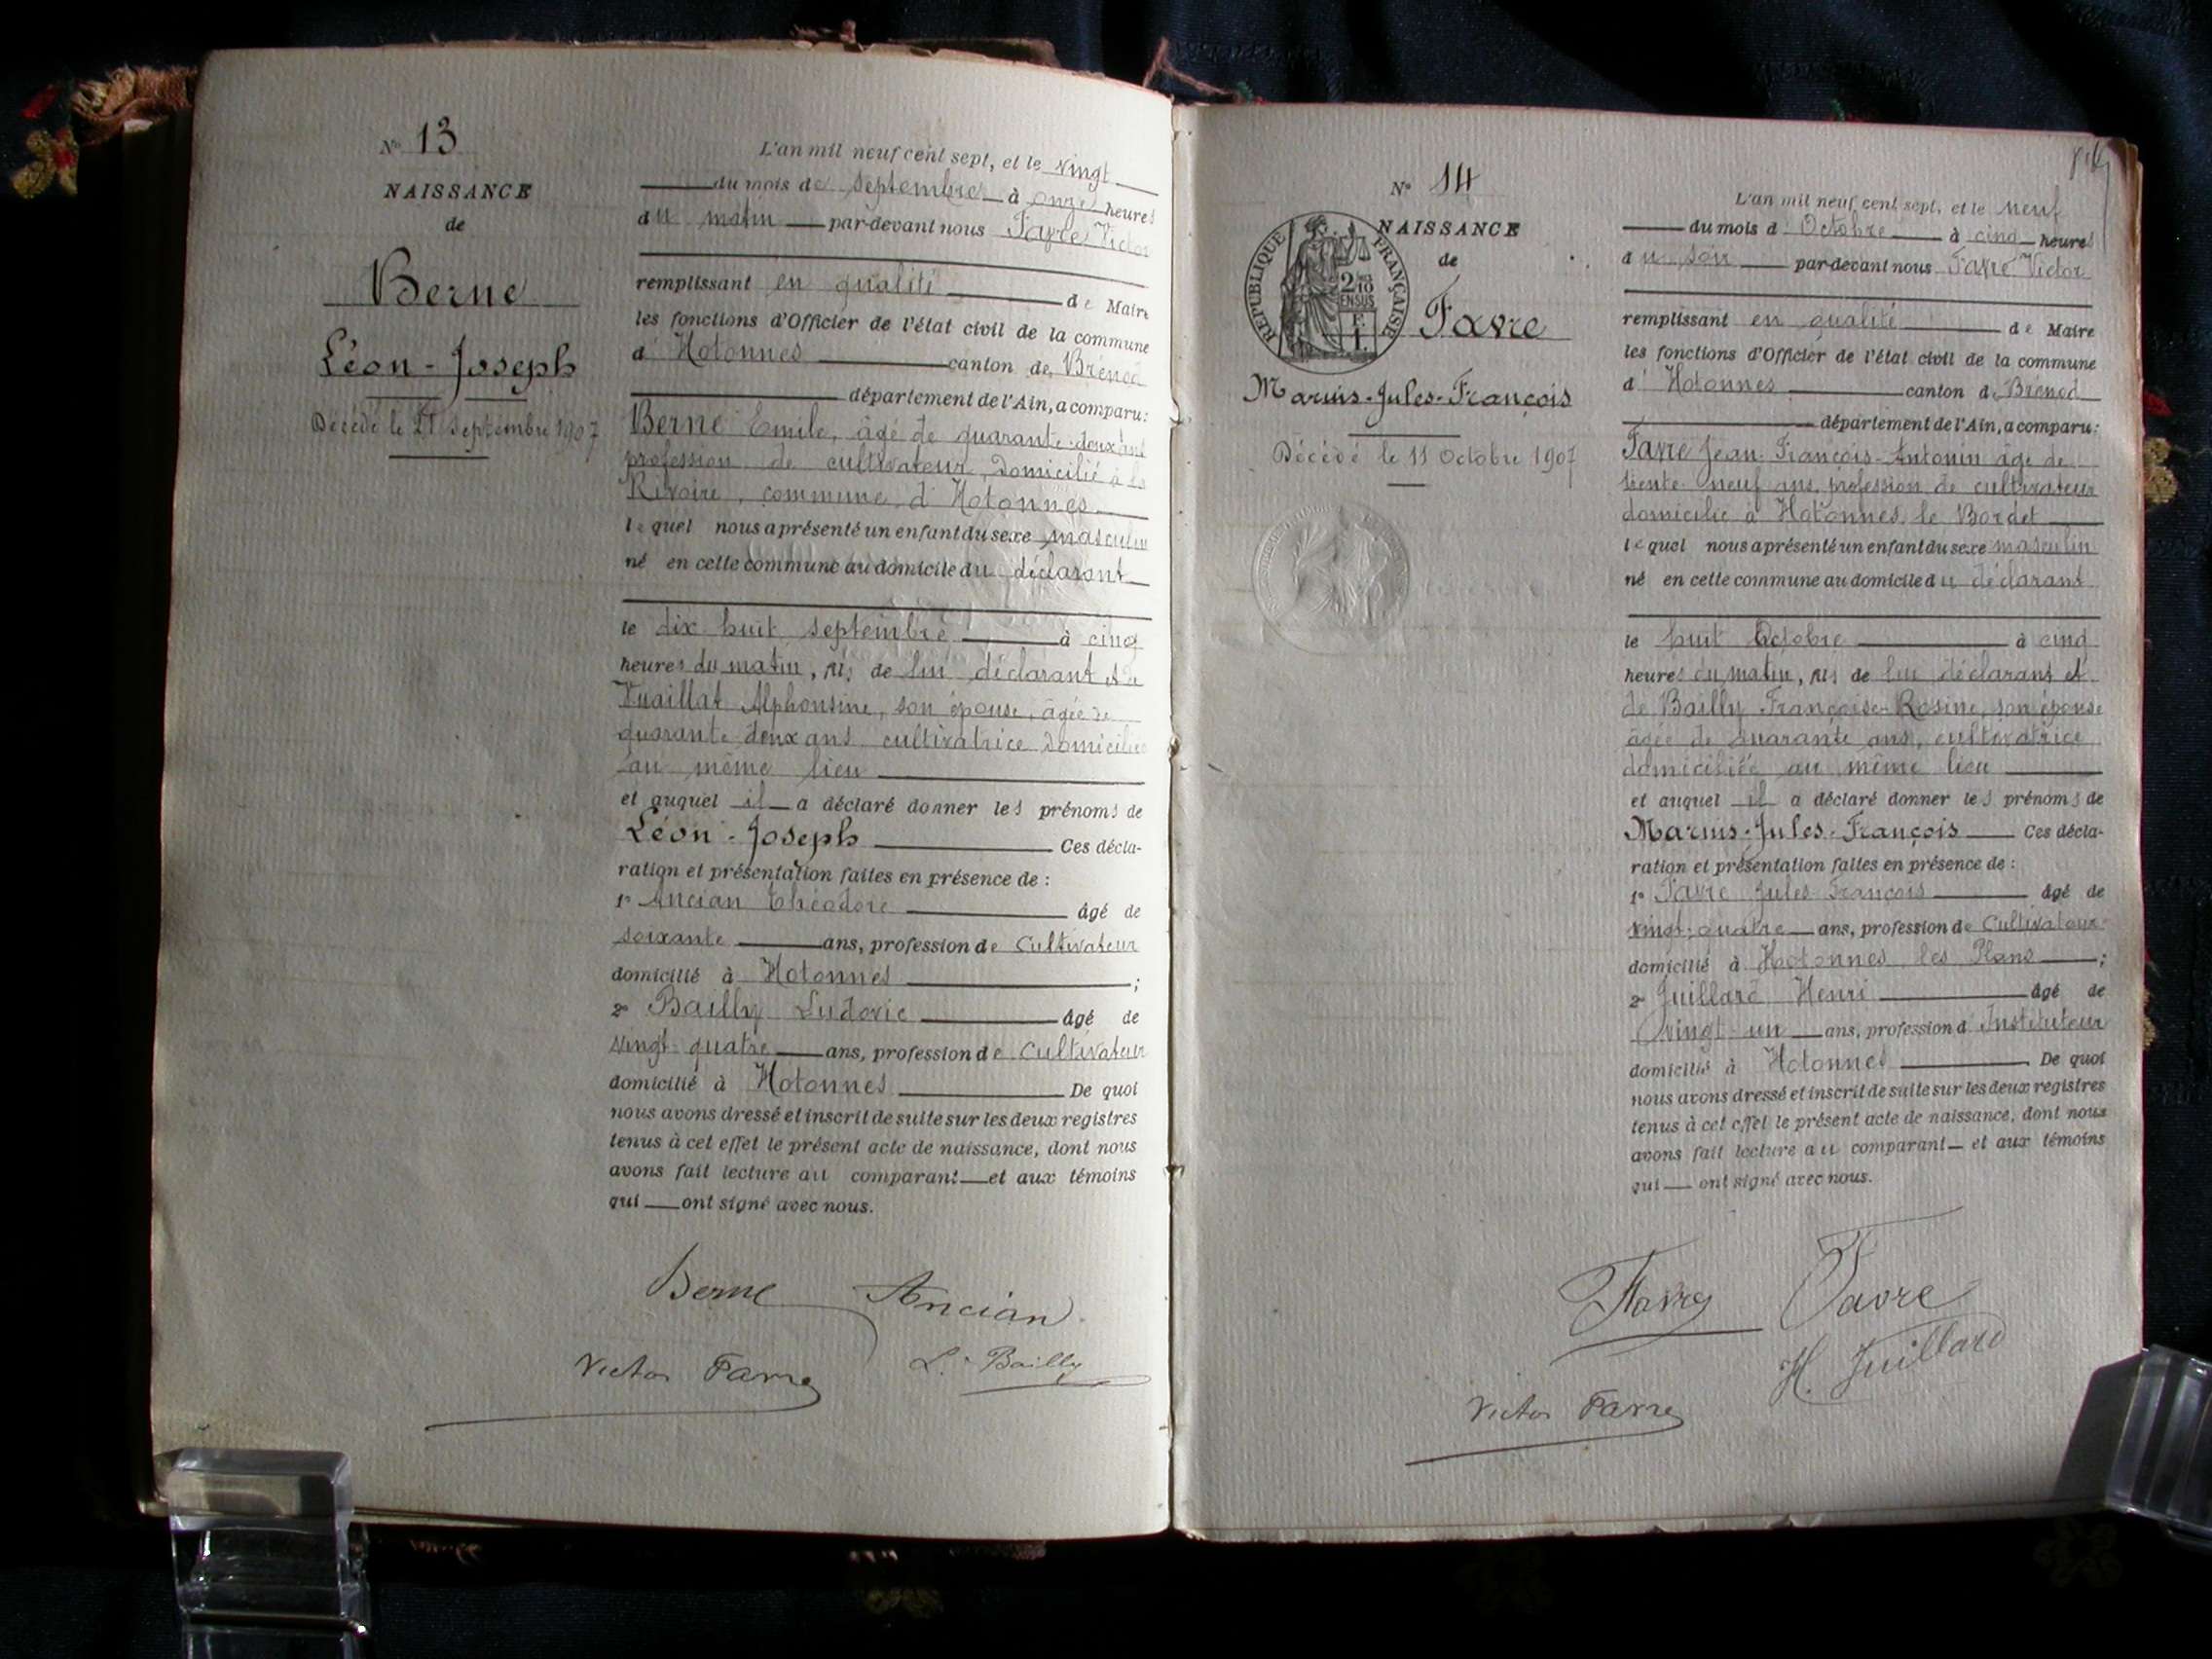 N° 13
NAISSANCE
de
Berne
Léon-Joseph
Décédé le 21 Septembre 1907
L'an mil neuf cent sept, et le vingt
du mois de septembre à onze heures
du matin par-devant nous Favre Victor
remplissant en qualité de Maire
les fonctions d'Officier de l'état civil de la commune
d' Hotonnes canton de Brénod
département de l'Ain, a comparu:
Berne Emile, âgé de quarante-deux ans
profession de cultivateur, domicilié à la
Rivoire, commune d'Hotonnes
lequel nous a présenté un enfant du sexe masculin
né en cette commune au domicile du déclarant
le dix huit septembre à cinq
heures du matin, fils de lui déclarant et de
Vuaillat Alphonsine, son épouse, âgée de
quarante deux ans cultivatrice domiciliée
au même lieu
et auquel il a déclaré donner les prénoms de
Léon-Joseph Ces décla-
ration et présentation faites en présence de :
1° Ancian Théodore âgé de
soixante ans, profession de Cultivateur
domicilié à Hotonnes ;
2° Bailly Ludovic âgé de
vingt-quatre ans, profession de Cultivateur
domicilié à Hotonnes De quoi
nous avons dressé et inscrit de suite sur les deux registres
tenus à cet effet le présent acte de naissance, dont nous
avons fait lecture au comparant et aux témoins
qui ont signé avec nous.
Berne Ancian
Victor Favre L. Bailly
N° 14
NAISSANCE
de
RÉPUBLIQUE FRANÇAISE
2/10 EN SUS
Favre
Marius-Jules-François
Décédé le 11 Octobre 1907
L'an mil neuf cent sept, et le neuf
du mois d'Octobre à cinq heures
du soir par-devant nous Favre Victor
remplissant en qualité de Maire
les fonctions d'Officier de l'état civil de la commune
d' Hotonnes canton de Brénod
département de l'Ain, a comparu:
Favre Jean-François-Antonin âgé de
trente-neuf ans, profession de cultivateur
domicilié à Hotonnes, le Bordet
lequel nous a présenté un enfant du sexe masculin
né en cette commune au domicile du déclarant
le huit Octobre à cinq
heures du matin, fils de lui déclarant et
de Bailly Françoise-Rosine, son épouse
âgée de quarante ans, cultivatrice
domiciliée au même lieu
et auquel il a déclaré donner les prénoms de
Marius-Jules-François Ces décla-
ration et présentation faites en présence de :
1° Favre Jules François âgé de
vingt-quatre ans, profession de Cultivateur
domicilié à Hotonnes, les Plans ;
2° Juillard Henri âgé de
vingt-un ans, profession d'Instituteur
domicilié à Hotonnes De quoi
nous avons dressé et inscrit de suite sur les deux registres
tenus à cet effet le présent acte de naissance, dont nous
avons fait lecture au comparant et aux témoins
qui ont signé avec nous.
Favre Favre
H. Juillard
Victor Favre